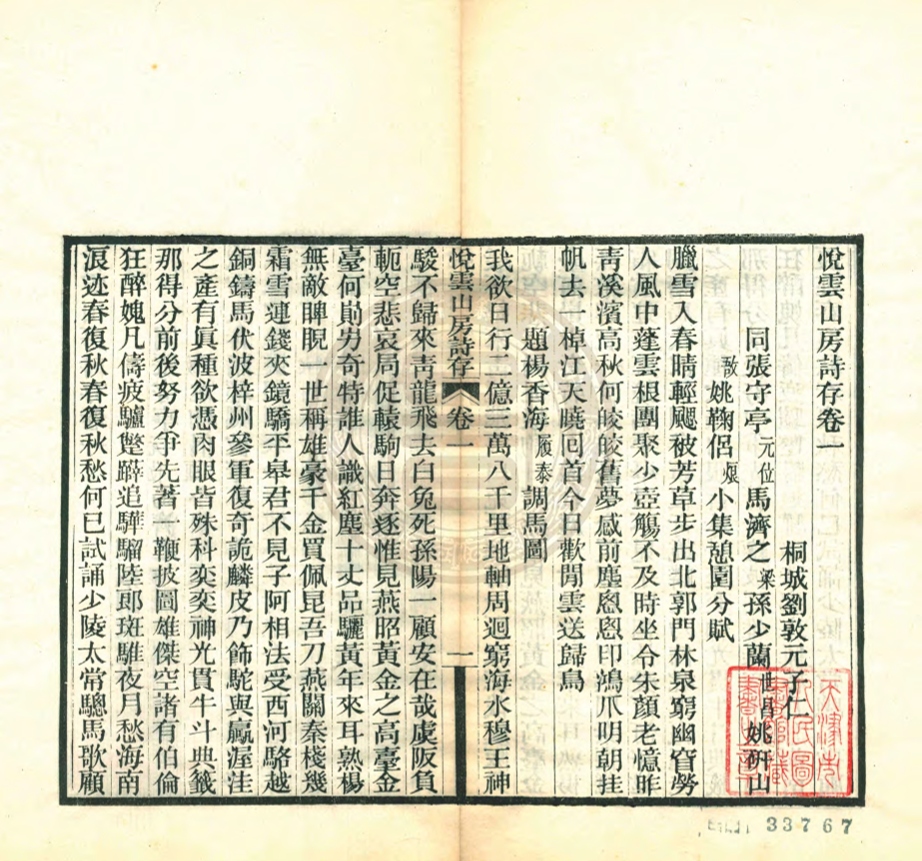 悅雲山房詩存卷一
桐城劉敦元子仁
同張守亭元位馬濟之梁孫少蘭世昌姚硏山
敔姚鞠侶烺小集憩園分賦
臘雪入春晴輕颸被芳草步出北郭門林泉窮幽窅勞
人風中蓬雲根團聚少壺觴不及時坐令朱顏老憶昨
靑溪濱高秋何皎皎舊夢感前塵恩恩印鴻爪明朝挂
帆去一棹江天曉回首今日歡閒雲送歸鳥
題楊香海履泰調馬圖
我欲日行二億三萬八千里地軸周迴窮海水穆王神
悅雲山房詩存 卷一 一
駿不歸來靑龍飛去白兔死孫陽一顧安在哉虞阪負
軛空悲哀局促轅駒日奔逐惟見燕昭黃金之高臺金
臺何勛男奇特誰人識紅塵十丈品驪黃年來耳熟楊
無敵睥睨一世稱雄豪千金買佩昆吾刀燕關秦棧幾
霜雪連錢夾鏡驕平皋君不見子阿相法受西河駱越
銅鑄馬伏波梓州參軍復奇詭麟皮乃飾駝與驘渥洼
之產有眞種欲憑肉眼皆殊科奕奕神光貫牛斗典籤
那得分前後努力爭先著一鞭披圖雄傑空諸有伯倫
狂醉媿凡儔疲驢蹩躠追驊騮陸郎斑騅夜月愁海南
浪迹春復秋春復秋愁何已試誦少陵太常驄馬歌顧
天津市人民圖書館藏書之章
33767